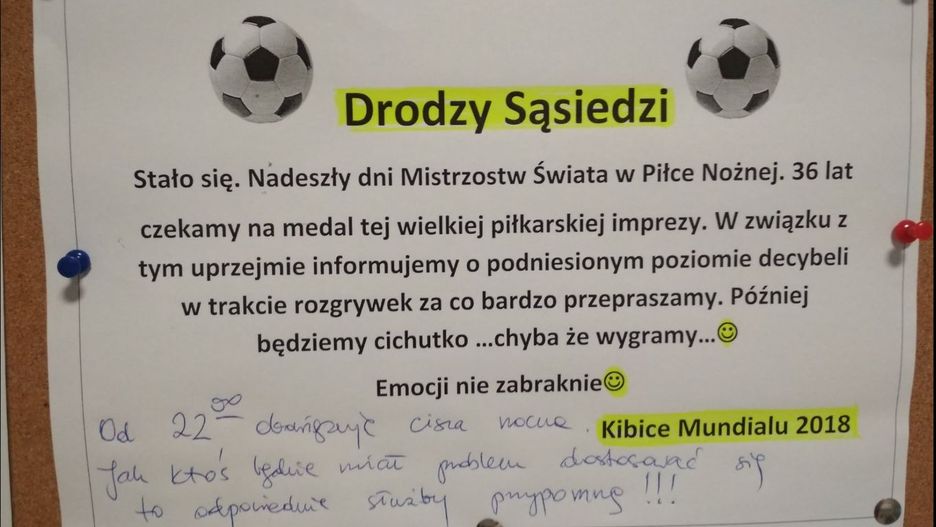 Drodzy Sąsiedzi
Stało się. Nadeszły dni Mistrzostw Świata w Piłce Nożnej. 36 lat
czekamy na medal tej wielkiej piłkarskiej imprezy. W związku z
tym uprzejmie informujemy o podniesionym poziomie decybeli
w trakcie rozgrywek za co bardzo przepraszamy. Później
będziemy cichutko ...chyba że wygramy...☺
Emocji nie zabraknie☺
Kibice Mundialu 2018
Od 22⁰⁰ obowiązuje cisza nocna.
Jak ktoś będzie miał problem dostosować się
to odpowiednie służby przypomną !!!